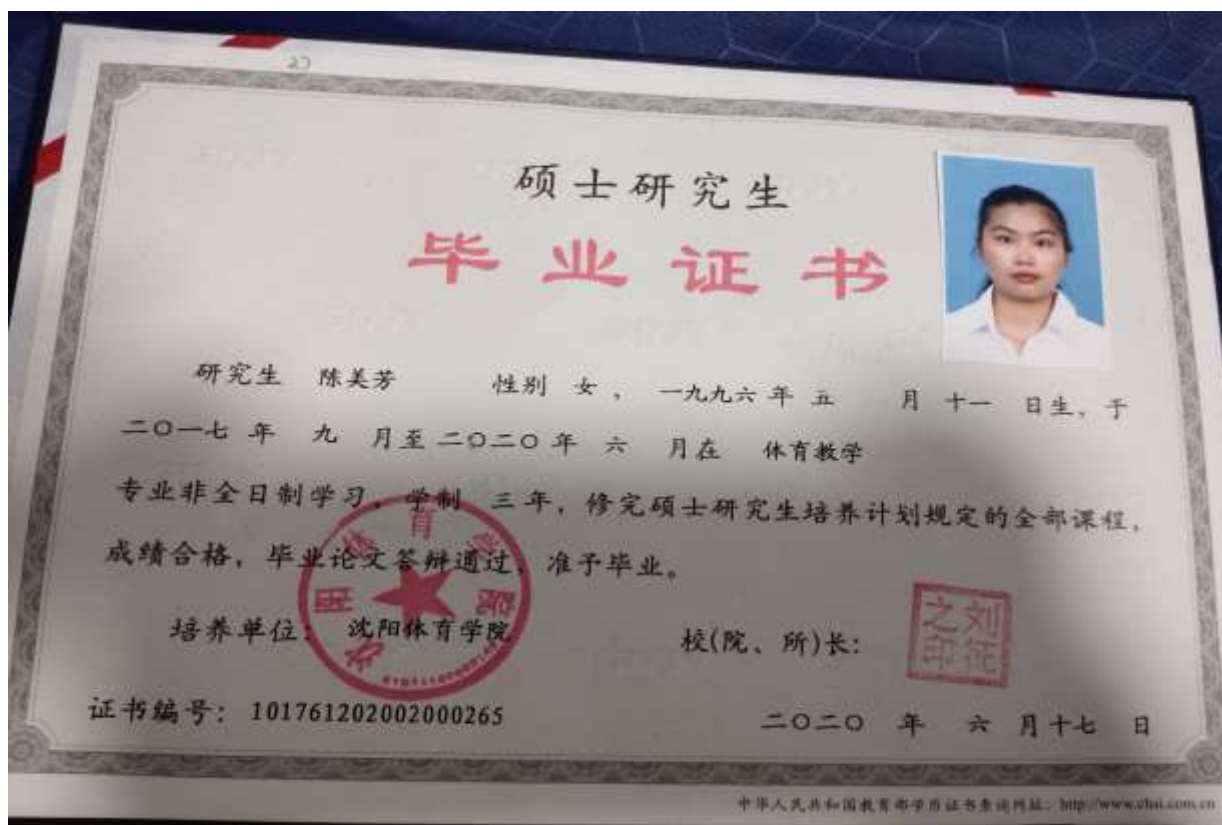 硕士研究生
毕业证书
研究生 陈美芳 性别 女 ， 一九九六 年 五 月 十一 日生，于
二〇一七 年 九 月至 二〇二〇 年 六 月在 体育教学
专业非全日制学习，学制 三 年，修完硕士研究生培养计划规定的全部课程，
成绩合格，毕业论文答辩通过，准予毕业。
培养单位： 沈阳体育学院
沈阳体育学院
校(院、所)长：
刘征之印
证书编号： 101761202002000265
二〇二〇 年 六 月 十七 日
中华人民共和国教育部学历证书查询网址：http://www.chsi.com.cn